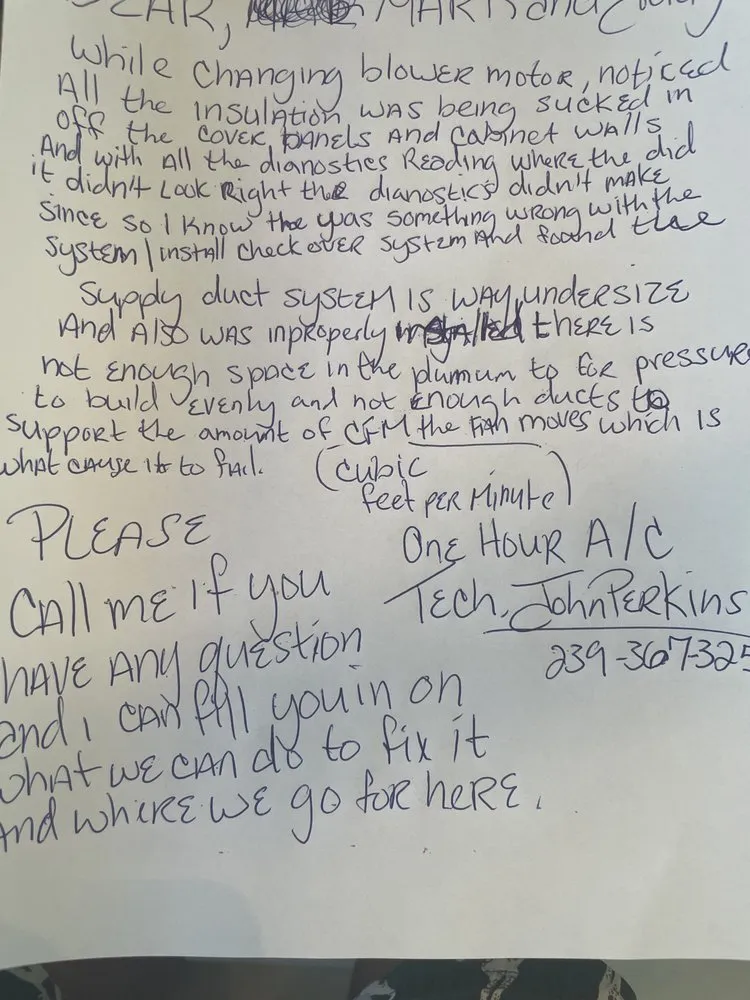 DEAR, MARK and
While changing blower motor, noticed
All the insulation was being sucked in
off the cover panels and cabinet walls
And with all the dianostics Reading where the did
it didn't Look Right the dianostics didn't make
since so I know the was something wrong with the
system/install check over system And found the
supply duct system is way undersize
And Also was inproperly installed there is
not enough space in the plumum to for pressure
to build evenly and not enough ducts to
support the amount of CFM the fan moves which is
what cause it to fail. (cubic
feet per Minute)
PLEASE
One Hour A/C
Call me if you
Tech. John Perkins
have any question
239-367-325
and i can fill you in on
what we can do to fix it
and where we go for here.